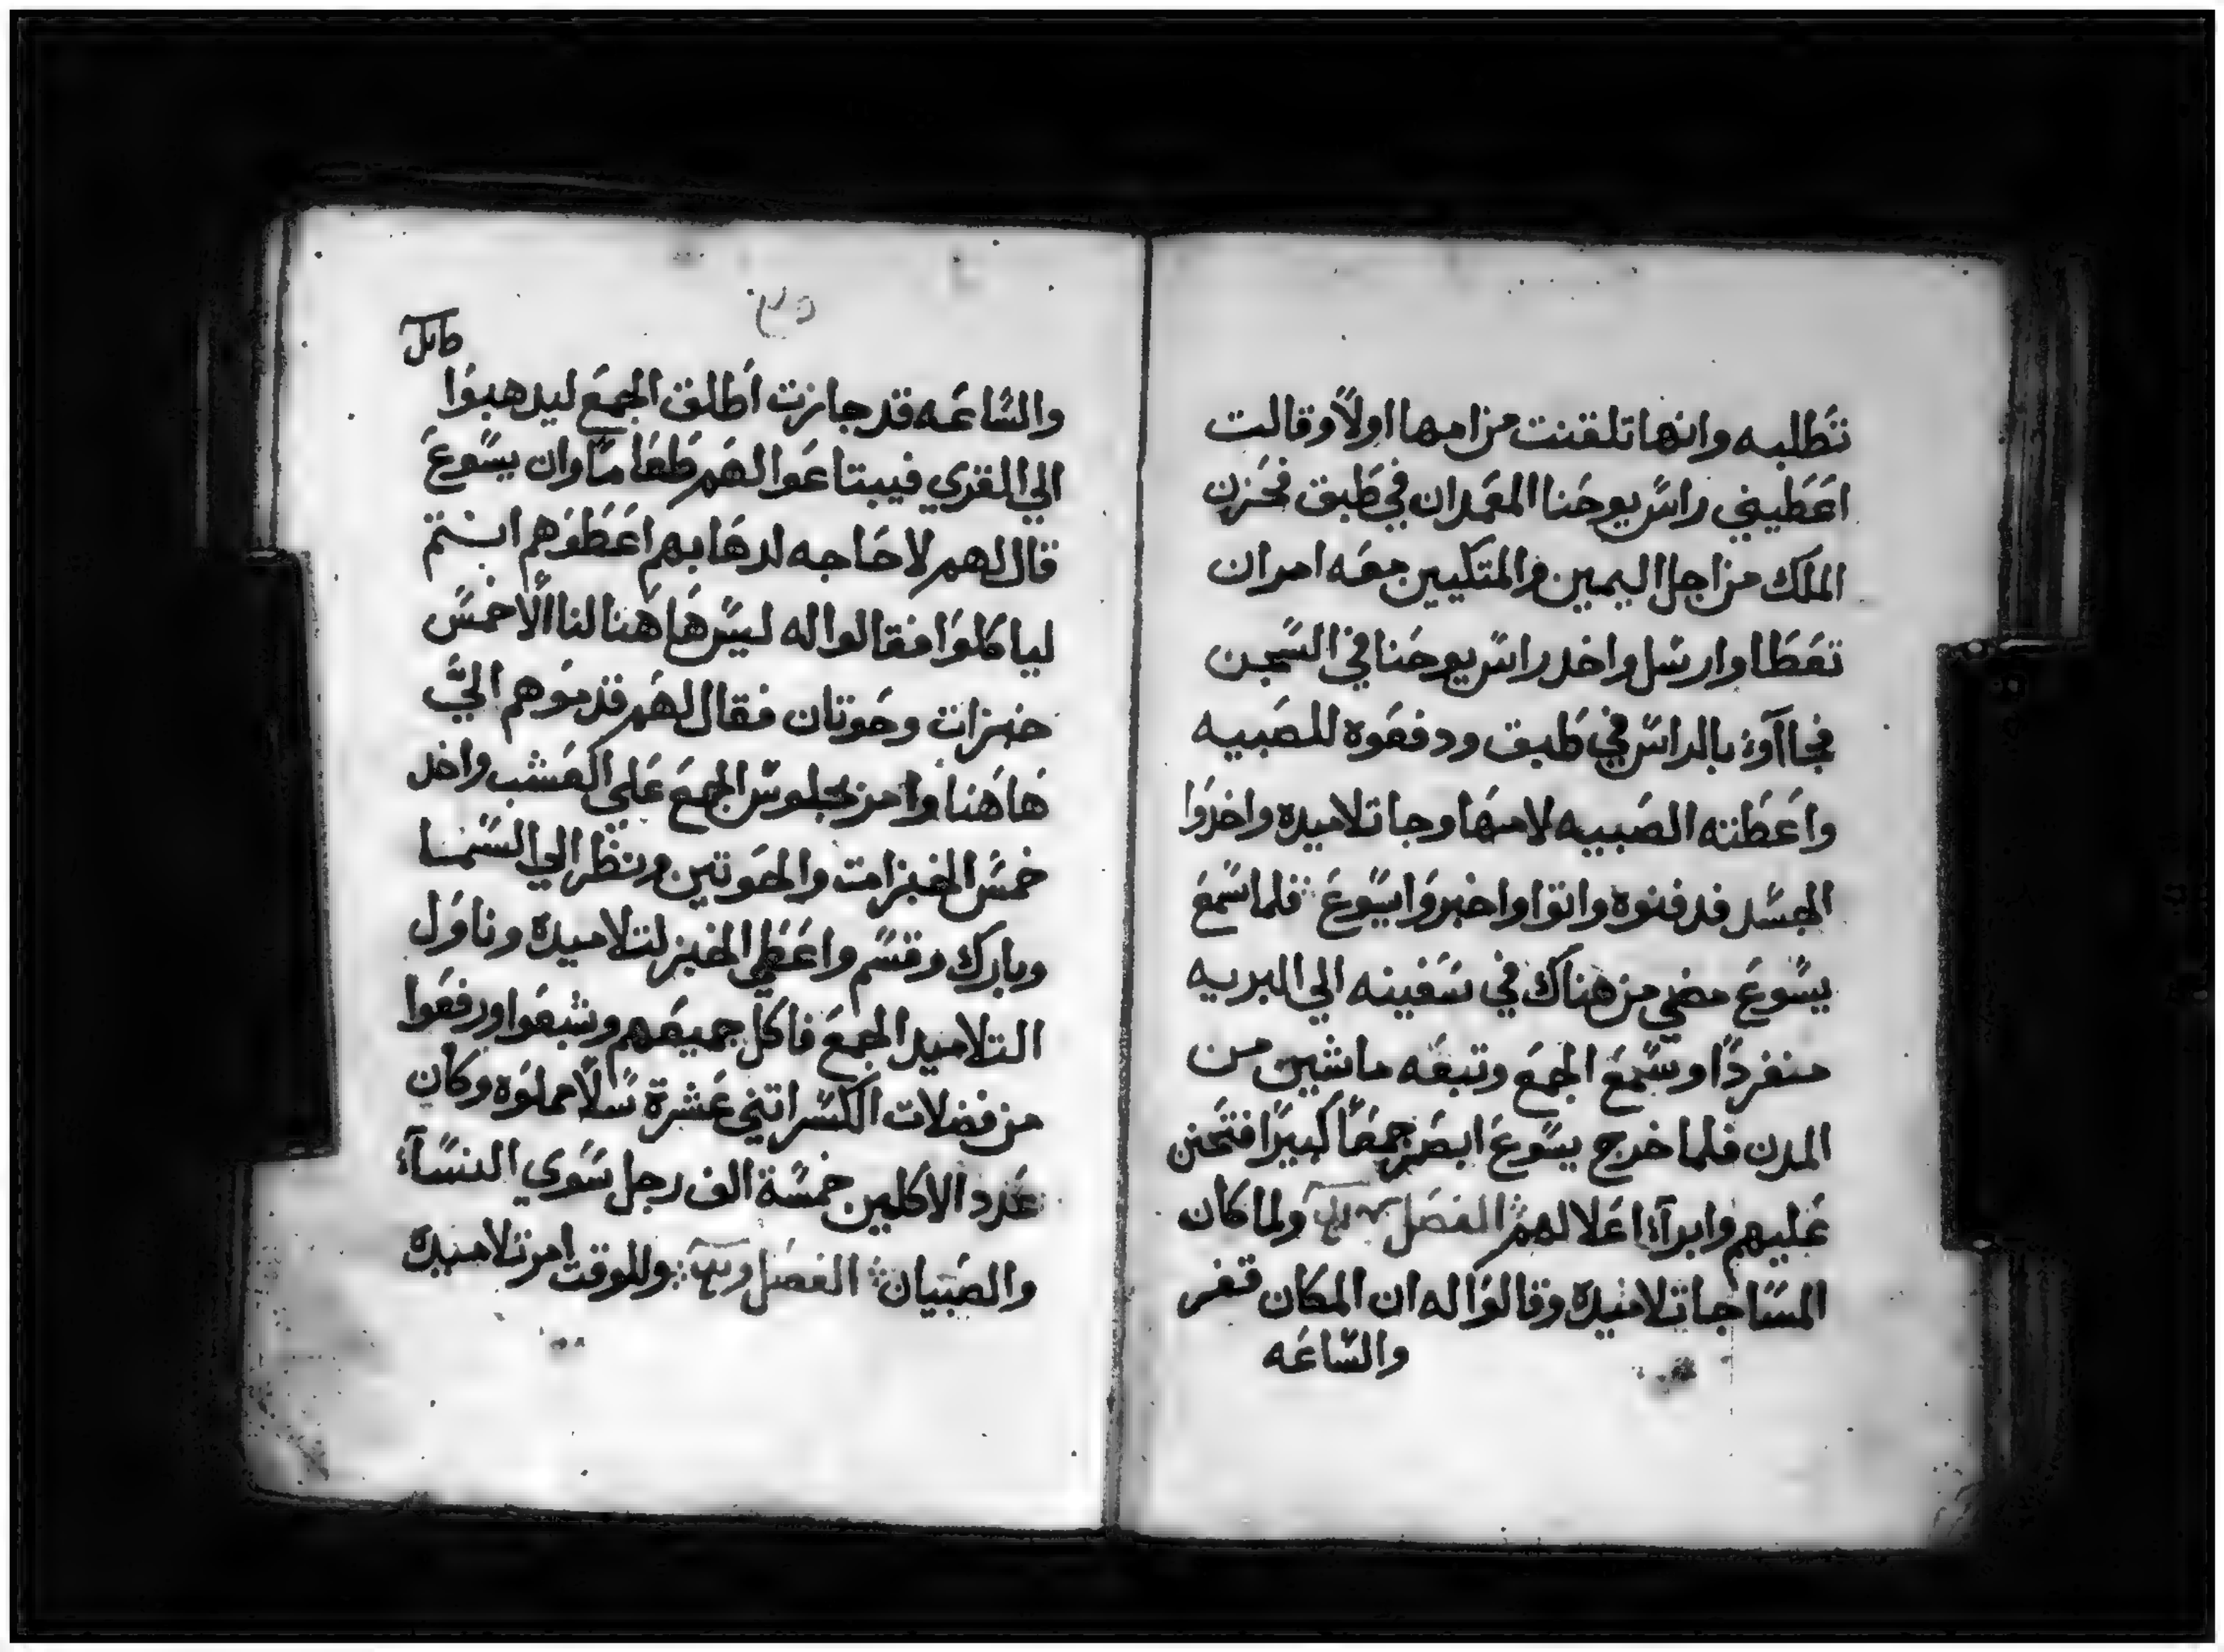 تطلبه وانها تلقنت من امها اولًا وقالت
اعَطيني راسّ يوحَنا المعَمدان في طَبق فحَزن
الملك من اجل اليمين والمتكيين معَه امر ان
تعَطَا وارسّل واخد راسّ يوحَنا في السّجن
فجاآوءُ بالراسّ في طَبق ودفعَوه للصَبيه
واعَطَته الصَبيه لامها وجا تلاميده واخدوَا
الجسّد فدفنوه واتوَا واخبروَا يسّوعَ فلما سّمعَ
يسّوعَ مضي من هناك في سَفينه الي البريه
منفردًا وسّمعَ الجمعَ وتبعَه ماشين من
المدن فلما خرج يسّوعَ ابصَر جمعًَا كبيرًا فتحَنن
عَليهم وابرآءَ اعَلالهم الفصَل ولما كان
المسّا جا تلاميده وقالوَا له ان المكان قفر
والسّاعَه
والسّاعَه قد جازت اطلق الجمعَ ليدهبوَا
الي القري فيبتاعَوا لهَم طَعَامًا وان يسّوعَ
قال لهم لا حَاجه لدهَابهم اعَطَوهم انتم
لياكلوَا فقالوا له ليسّ هَاهَنا لنا الَّا خمسّ
خبزات وحَوتان فقال لهَم قدموَهم اليَّ
هَاهَنا وامر بجلوسّ الجمعَ عَلي العَشب واخد
خمسّ الخبزات والحَوتين ونظَر الي السّما
وبارك وقسّم واعَطَي الخبز لتلاميده وناوَل
التلاميد الجمعَ فاكل جميعَهم وشبعَوا ورفعَوا
من فضلات الكسّر اتني عَشرة سّلًا مملوَه وكان
عَدد الاكلين خمسّة الف رجل سّوَي النسّآءَ
والصَبيان الفصَل وللوقت امر تلاميده